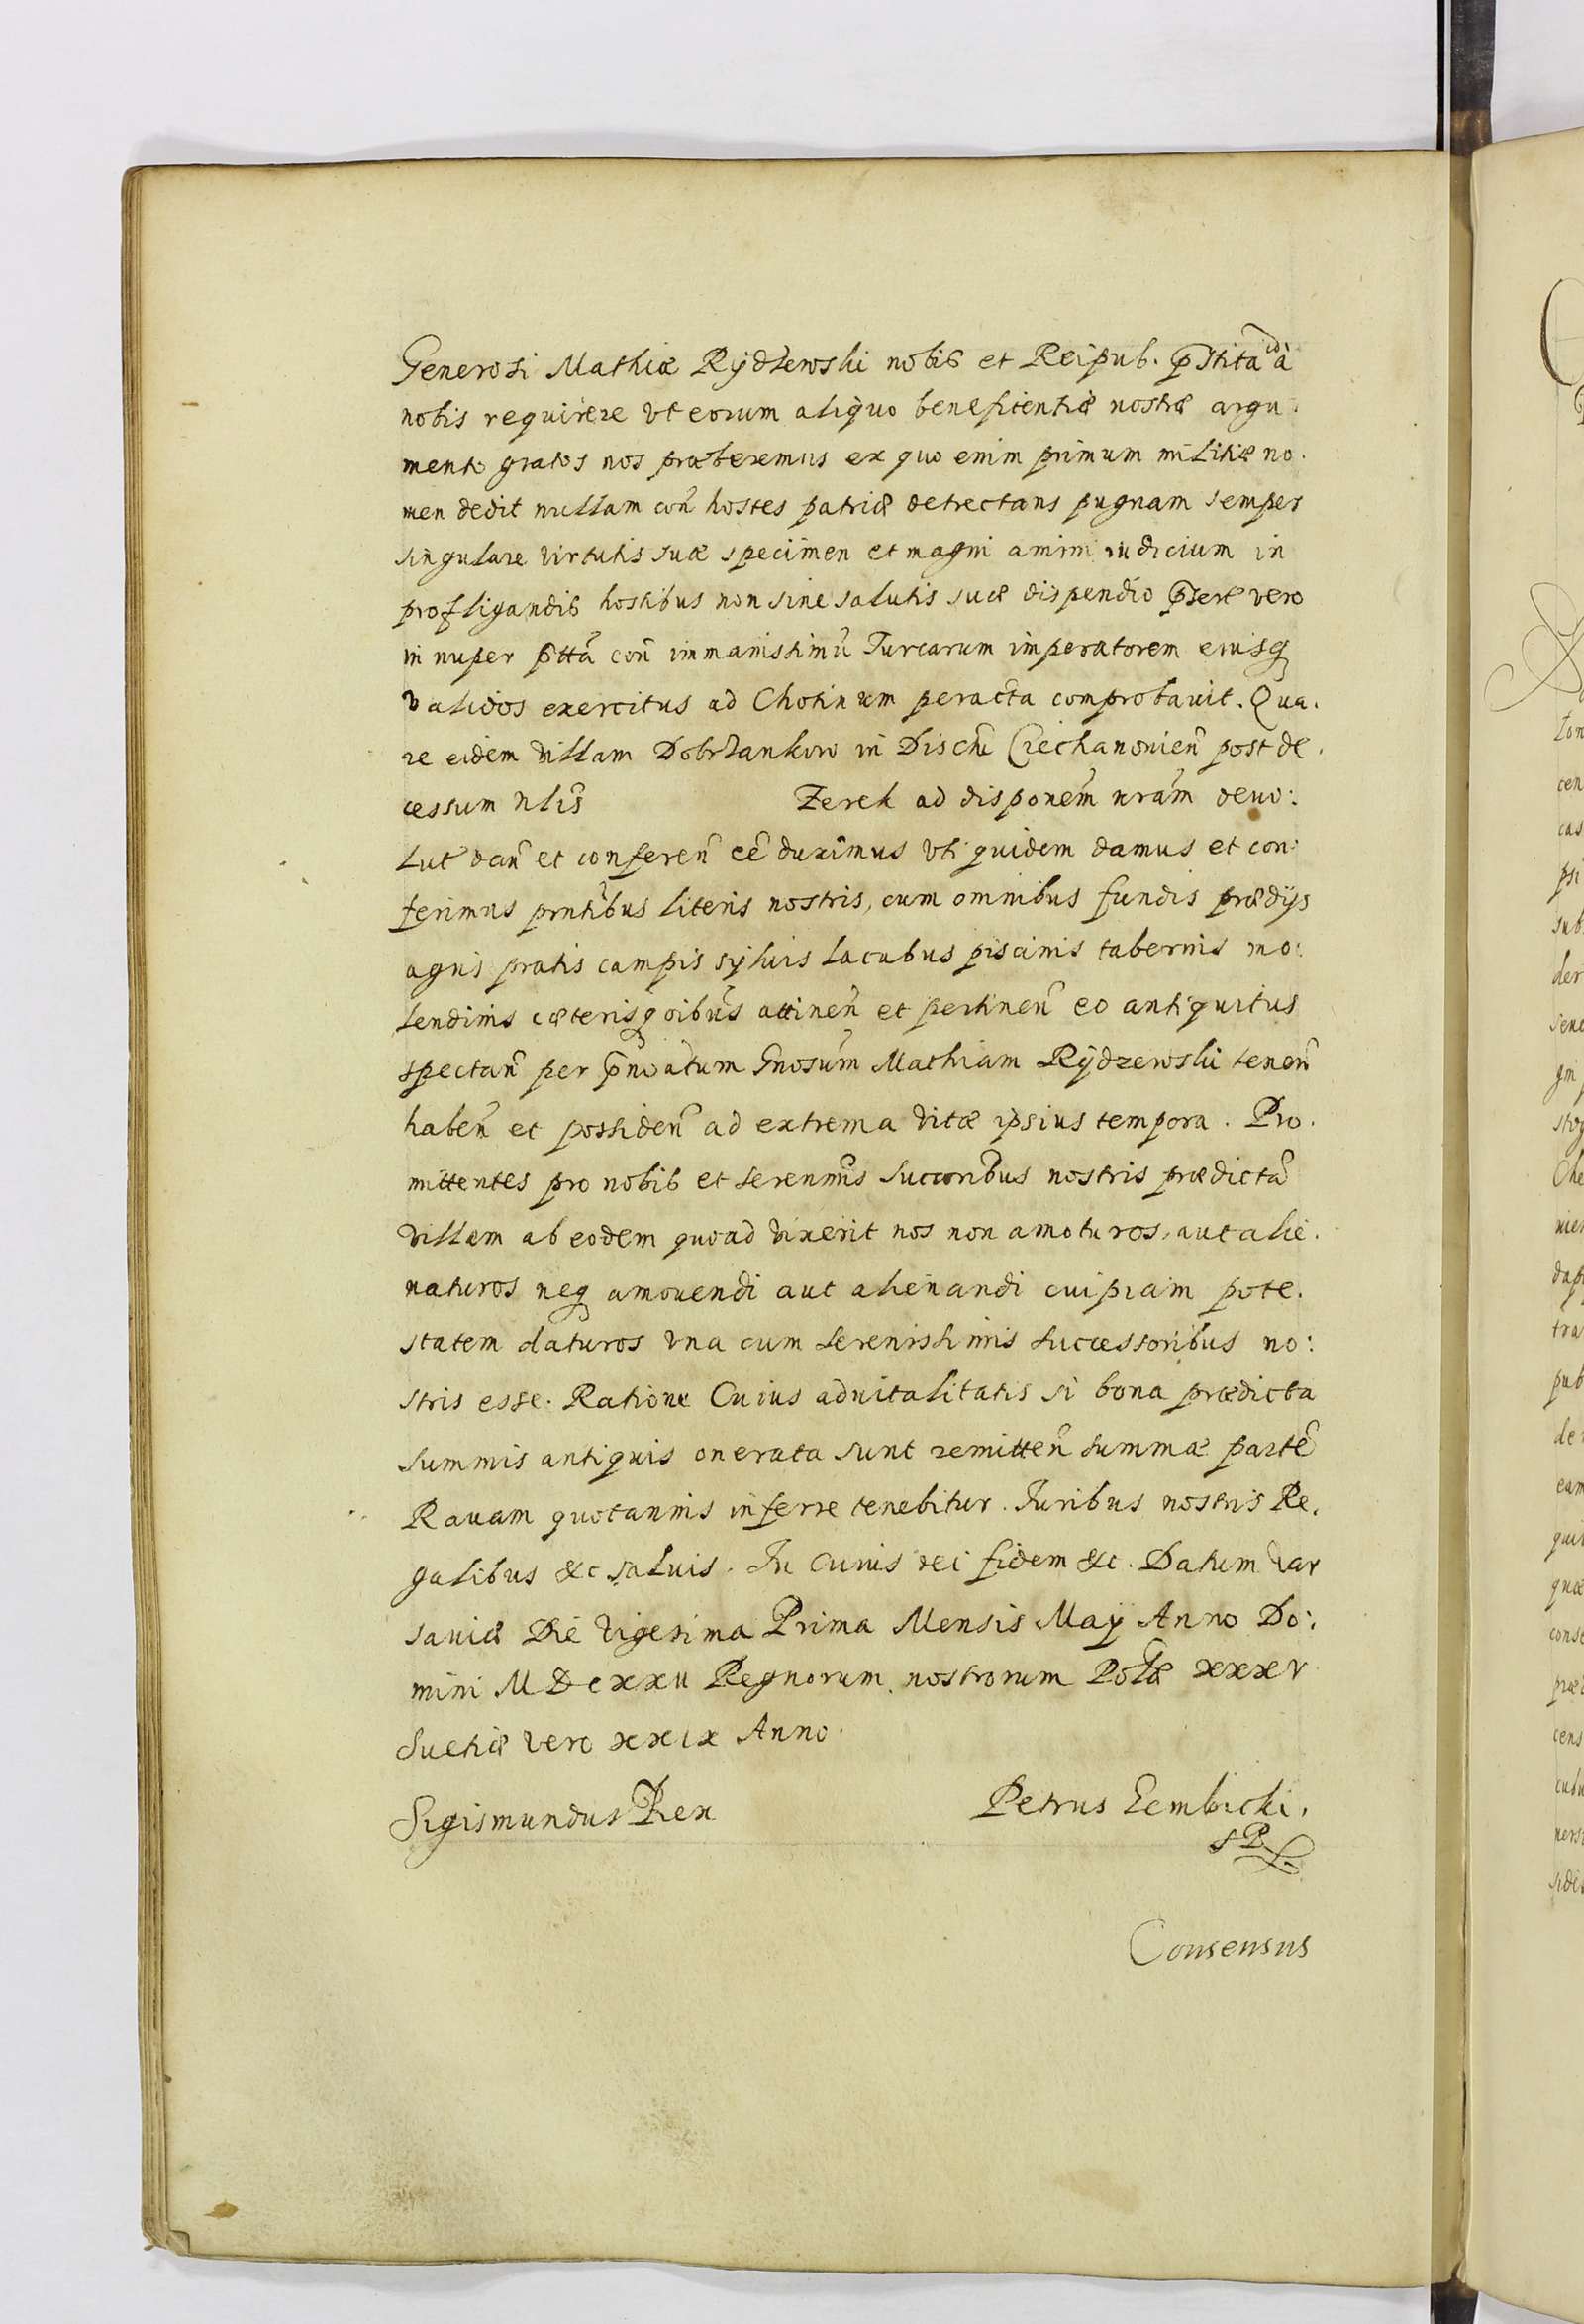 Generosi Mathiæ Rydzewski nobis et Reipub. p̃stita id à
nobis requirere vt eorum aliquo beneficentiæ nostræ argu:
mento gratos nos præberemus ex quo enim primum militiæ no.
men dedit nullam con̄ hostes patriæ detrectans pugnam semper
singulare virtutis suæ specimen et magni animi iudicium in
profligandis hostibus non sine salutis suæ dispendio p̃sert̃ vero
in nuper p̃ttã con̄ immanissimū Turcarum imperatorem eiusq
validos exercitus ad Chotinum peracta comprobauit. Qua.
re eidem villam Dobrzankow in Disctũ Ciechanonien̄ post de.
cessum nlis̃ Zerek ad disponem̄ nram̄ deuo:
lut̃ dan̄ et conferen̄ eē duximus vti quidem damus et con:
ferimus pntibus literis nostris, cum omnibus fundis prædijs
agris pratis campis syluis lacubus piscinis tabernis mo:
lendinis cæterisq oibus̃ attinen̄ et pertinen̄ eo antiquitus
spectan̄ per p̃noatum Gnosum̄ Mathiam Rydzewski tenen̄
haben̄ et possiden̄ ad extrema vitæ ipsius tempora. Pro.
mittentes pro nobis et serenmis̃ succoribus̃ nostris prædictã
villam ab eodem quoad vixerit nos non amoturos, aut alie.
naturos neq amouendi aut alienandi cuipiam pote.
statem daturos vna cum serenissimis successoribus no:
stris esse. Ratione Cuius aduitalitatis si bona prædicta
summis antiquis onerata sunt remitten̄ summæ partẽ
Rauam quotannis inferre tenebitur. Iuribus nostris Re.
galibus &c saluis. In cuius rei fidem &c. Datum Var
sauiæ Die vigesima Prima Mensis Maÿ Anno Do:
mini MDcxxii Regnorum nostrorum Polæ̃ xxxv
Suetiæ vero xxix Anno.
Sigismundus Rex Petrus Gembicki.
SP
Consensus